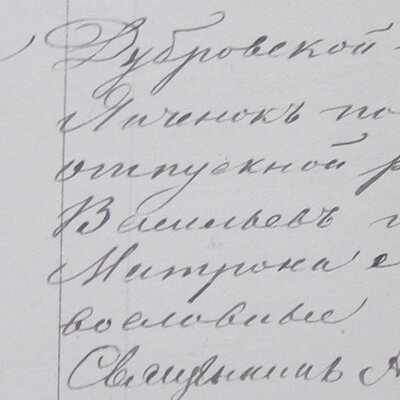 Дубровской
Яченокъ по
отпускной р
Васильевъ п
Матрона с
вославные
Священникъ А